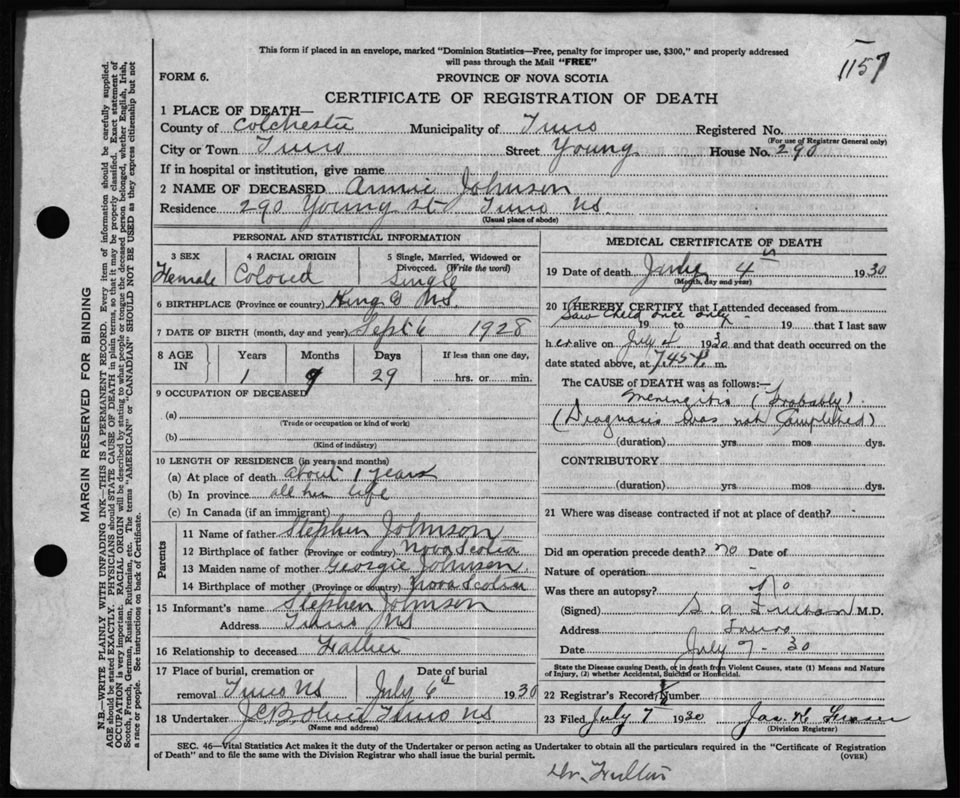 This form if placed in an envelope, marked "Dominion Statistics—Free, penalty for improper use, $300," and properly addressed
will pass through the Mail "FREE"
1157
FORM 6.
PROVINCE OF NOVA SCOTIA
CERTIFICATE OF REGISTRATION OF DEATH
1 PLACE OF DEATH—
County of Colchester Municipality of Truro Registered No.
(For use of Registrar General only)
City or Town Truro Street Young House No. 290
If in hospital or institution, give name
2 NAME OF DECEASED Annie Johnson
Residence 290 Young St Truro NS.
(Usual place of abode)
PERSONAL AND STATISTICAL INFORMATION
3 SEX 4 RACIAL ORIGIN 5 Single, Married, Widowed or
Divorced. (Write the word)
Female Colored Single
6 BIRTHPLACE (Province or country) Kings Co NS.
7 DATE OF BIRTH (month, day and year) Sept 6 1928
8 AGE IN Years Months Days If less than one day,
1 9 29 hrs. or min.
9 OCCUPATION OF DECEASED
(a)
(Trade or occupation or kind of work)
(b)
(Kind of industry)
10 LENGTH OF RESIDENCE (in years and months)
(a) At place of death about 1 years
(b) In province all her life
(c) In Canada (if an immigrant)
Parents
11 Name of father Stephen Johnson
12 Birthplace of father (Province or country) Nova Scotia
13 Maiden name of mother Georgie Johnson
14 Birthplace of mother (Province or country) Nova Scotia
15 Informant's name Stephen Johnson
Address Truro NS
16 Relationship to deceased Father
17 Place of burial, cremation or Date of burial
removal Truro NS July 6 1930
18 Undertaker Truro NS
(Name and address)
MEDICAL CERTIFICATE OF DEATH
19 Date of death July 4th 1930
(Month, day and year)
20 I HEREBY CERTIFY that I attended deceased from
Saw child once only
19 to 19 that I last saw
h er alive on July 4 1930 and that death occurred on the
date stated above, at 7.45 P. m.
The CAUSE OF DEATH was as follows:—
Meningitis (Probably)
(Diagnosis was not Completed)
(duration) yrs. mos. dys.
CONTRIBUTORY
(duration) yrs. mos. dys.
21 Where was disease contracted if not at place of death?
Did an operation precede death? no Date of
Nature of operation
Was there an autopsy? No
(Signed) M.D.
Address Truro
Date July 7 - 30
State the Disease causing Death, or in death from Violent Causes, state (1) Means and Nature
of Injury, (2) whether Accidental, Suicidal or Homicidal.
22 Registrar's Record Number.
23 Filed July 7 1930
(Division Registrar)
SEC. 46—Vital Statistics Act makes it the duty of the Undertaker or person acting as Undertaker to obtain all the particulars required in the "Certificate of Registration
of Death" and to file the same with the Division Registrar who shall issue the burial permit. (OVER)
MARGIN RESERVED FOR BINDING
N.B.—WRITE PLAINLY WITH UNFADING INK—THIS IS A PERMANENT RECORD. Every item of information should be carefully supplied.
AGE should be stated EXACTLY. PHYSICIANS should STATE CAUSE OF DEATH in plain terms, so that it may be properly classified. Exact statement of
OCCUPATION is very important. RACIAL ORIGIN will be described by stating to what people or tongue the deceased person belonged, whether English, Irish,
Scotch, French, German, Russian, Ruthenian, etc. The terms "AMERICAN" or "CANADIAN" SHOULD NOT BE USED as they express citizenship but not
a race or people. See instructions on back of Certificate.